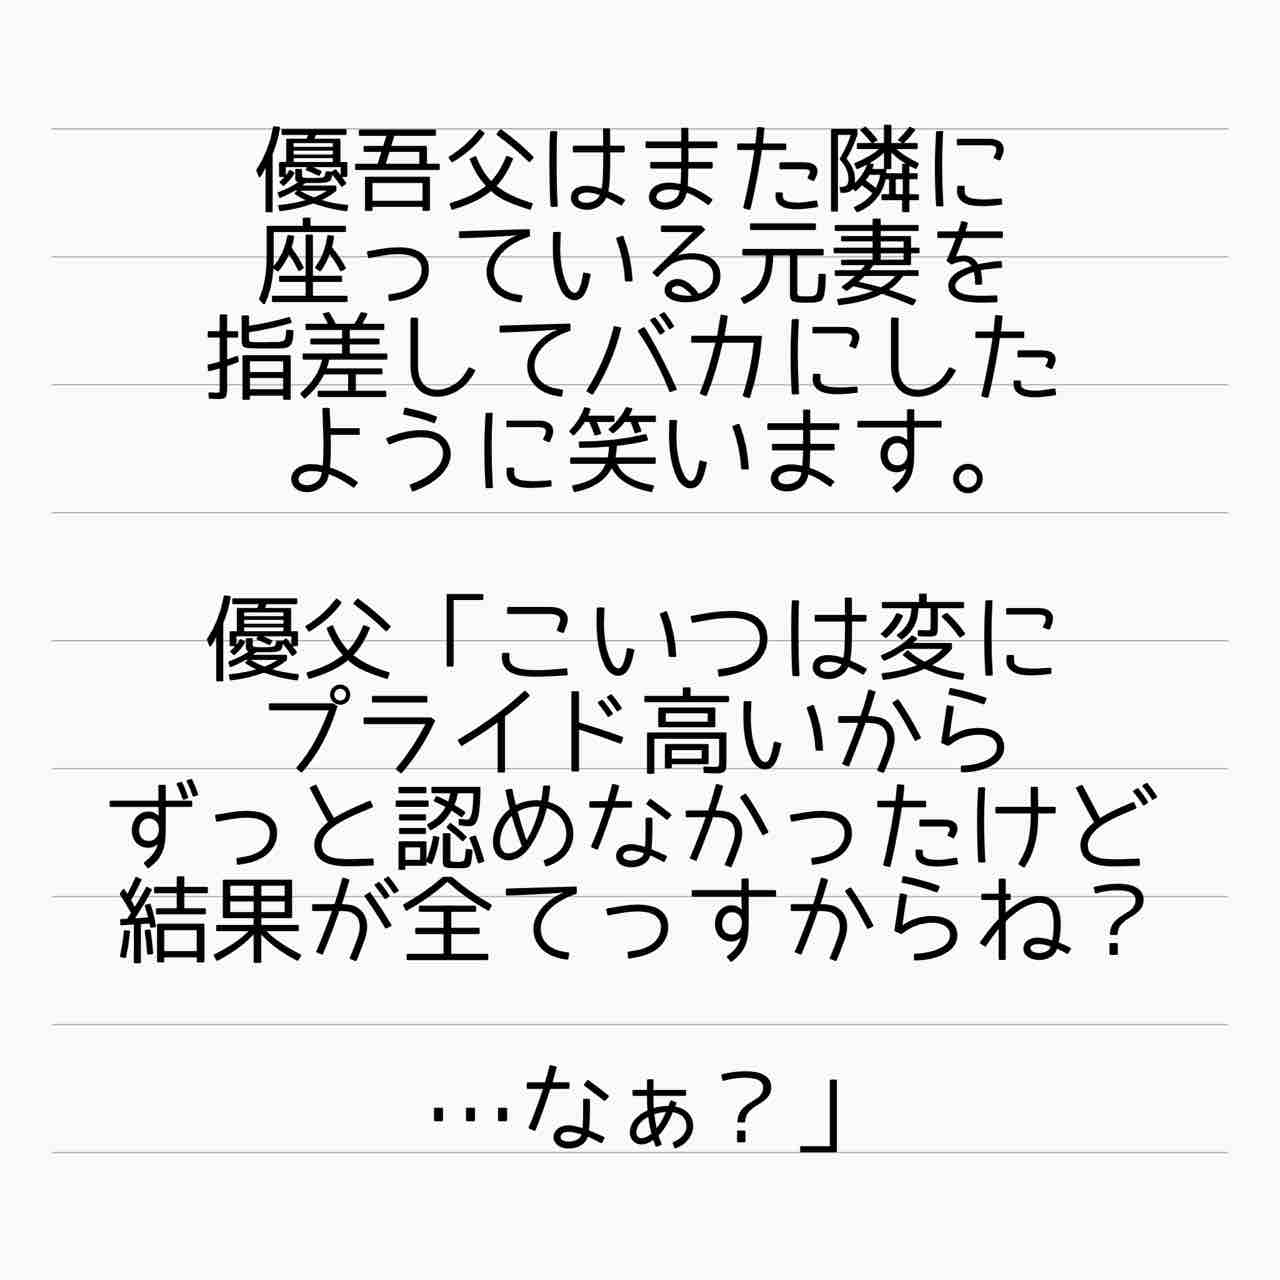 優吾父はまた隣に
座っている元妻を
指差してバカにした
ように笑います。
優父「こいつは変に
プライド高いから
ずっと認めなかったけど
結果が全てっすからね？
…なぁ？」